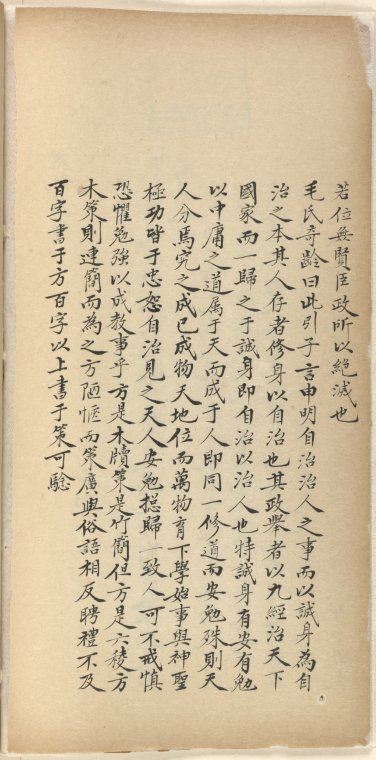 若位無賢臣政所以絕滅也
毛氏奇齡曰此引子言申明自治治人之事而以誠身為自
治之本其人存者修身以自治也其政舉者以九經治天下
國家而一歸之于誠身即自治以治人也特誠身有安有勉
以中庸之道属于天而成于人即同一修道而安勉殊則天
人分焉究之成已成物天地位而萬物育下學始事與神聖
極功皆于忠恕自治見之天人安勉揔歸一致人可不戒慎
恐懼勉強以成教事乎方是木牘策是竹簡但方是六稜方
木策則連簡而為之方陋愜而策廣與俗語相反聘禮不及
百字書于方百字以上書于策可驗